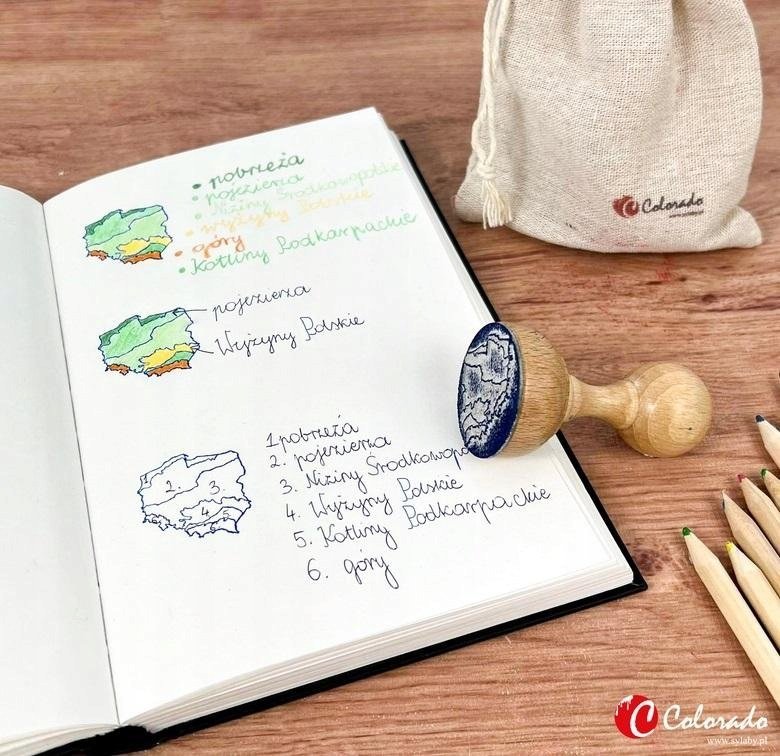 • pobrzeża
• pojezierza
• Niziny Środkowopolskie
• wyżyny Polskie
• góry
• Kotliny Podkarpackie
pojezierza
Wyżyny Polskie
1 pobrzeża
2. pojezierza
3. Niziny Środkowopo
4. Wyżyny Polskie
5. Kotliny Podkarpackie
6. góry
2. 3.
4 5
C Colorado
www.sylaby.pl
C Colorado
www.sylaby.pl